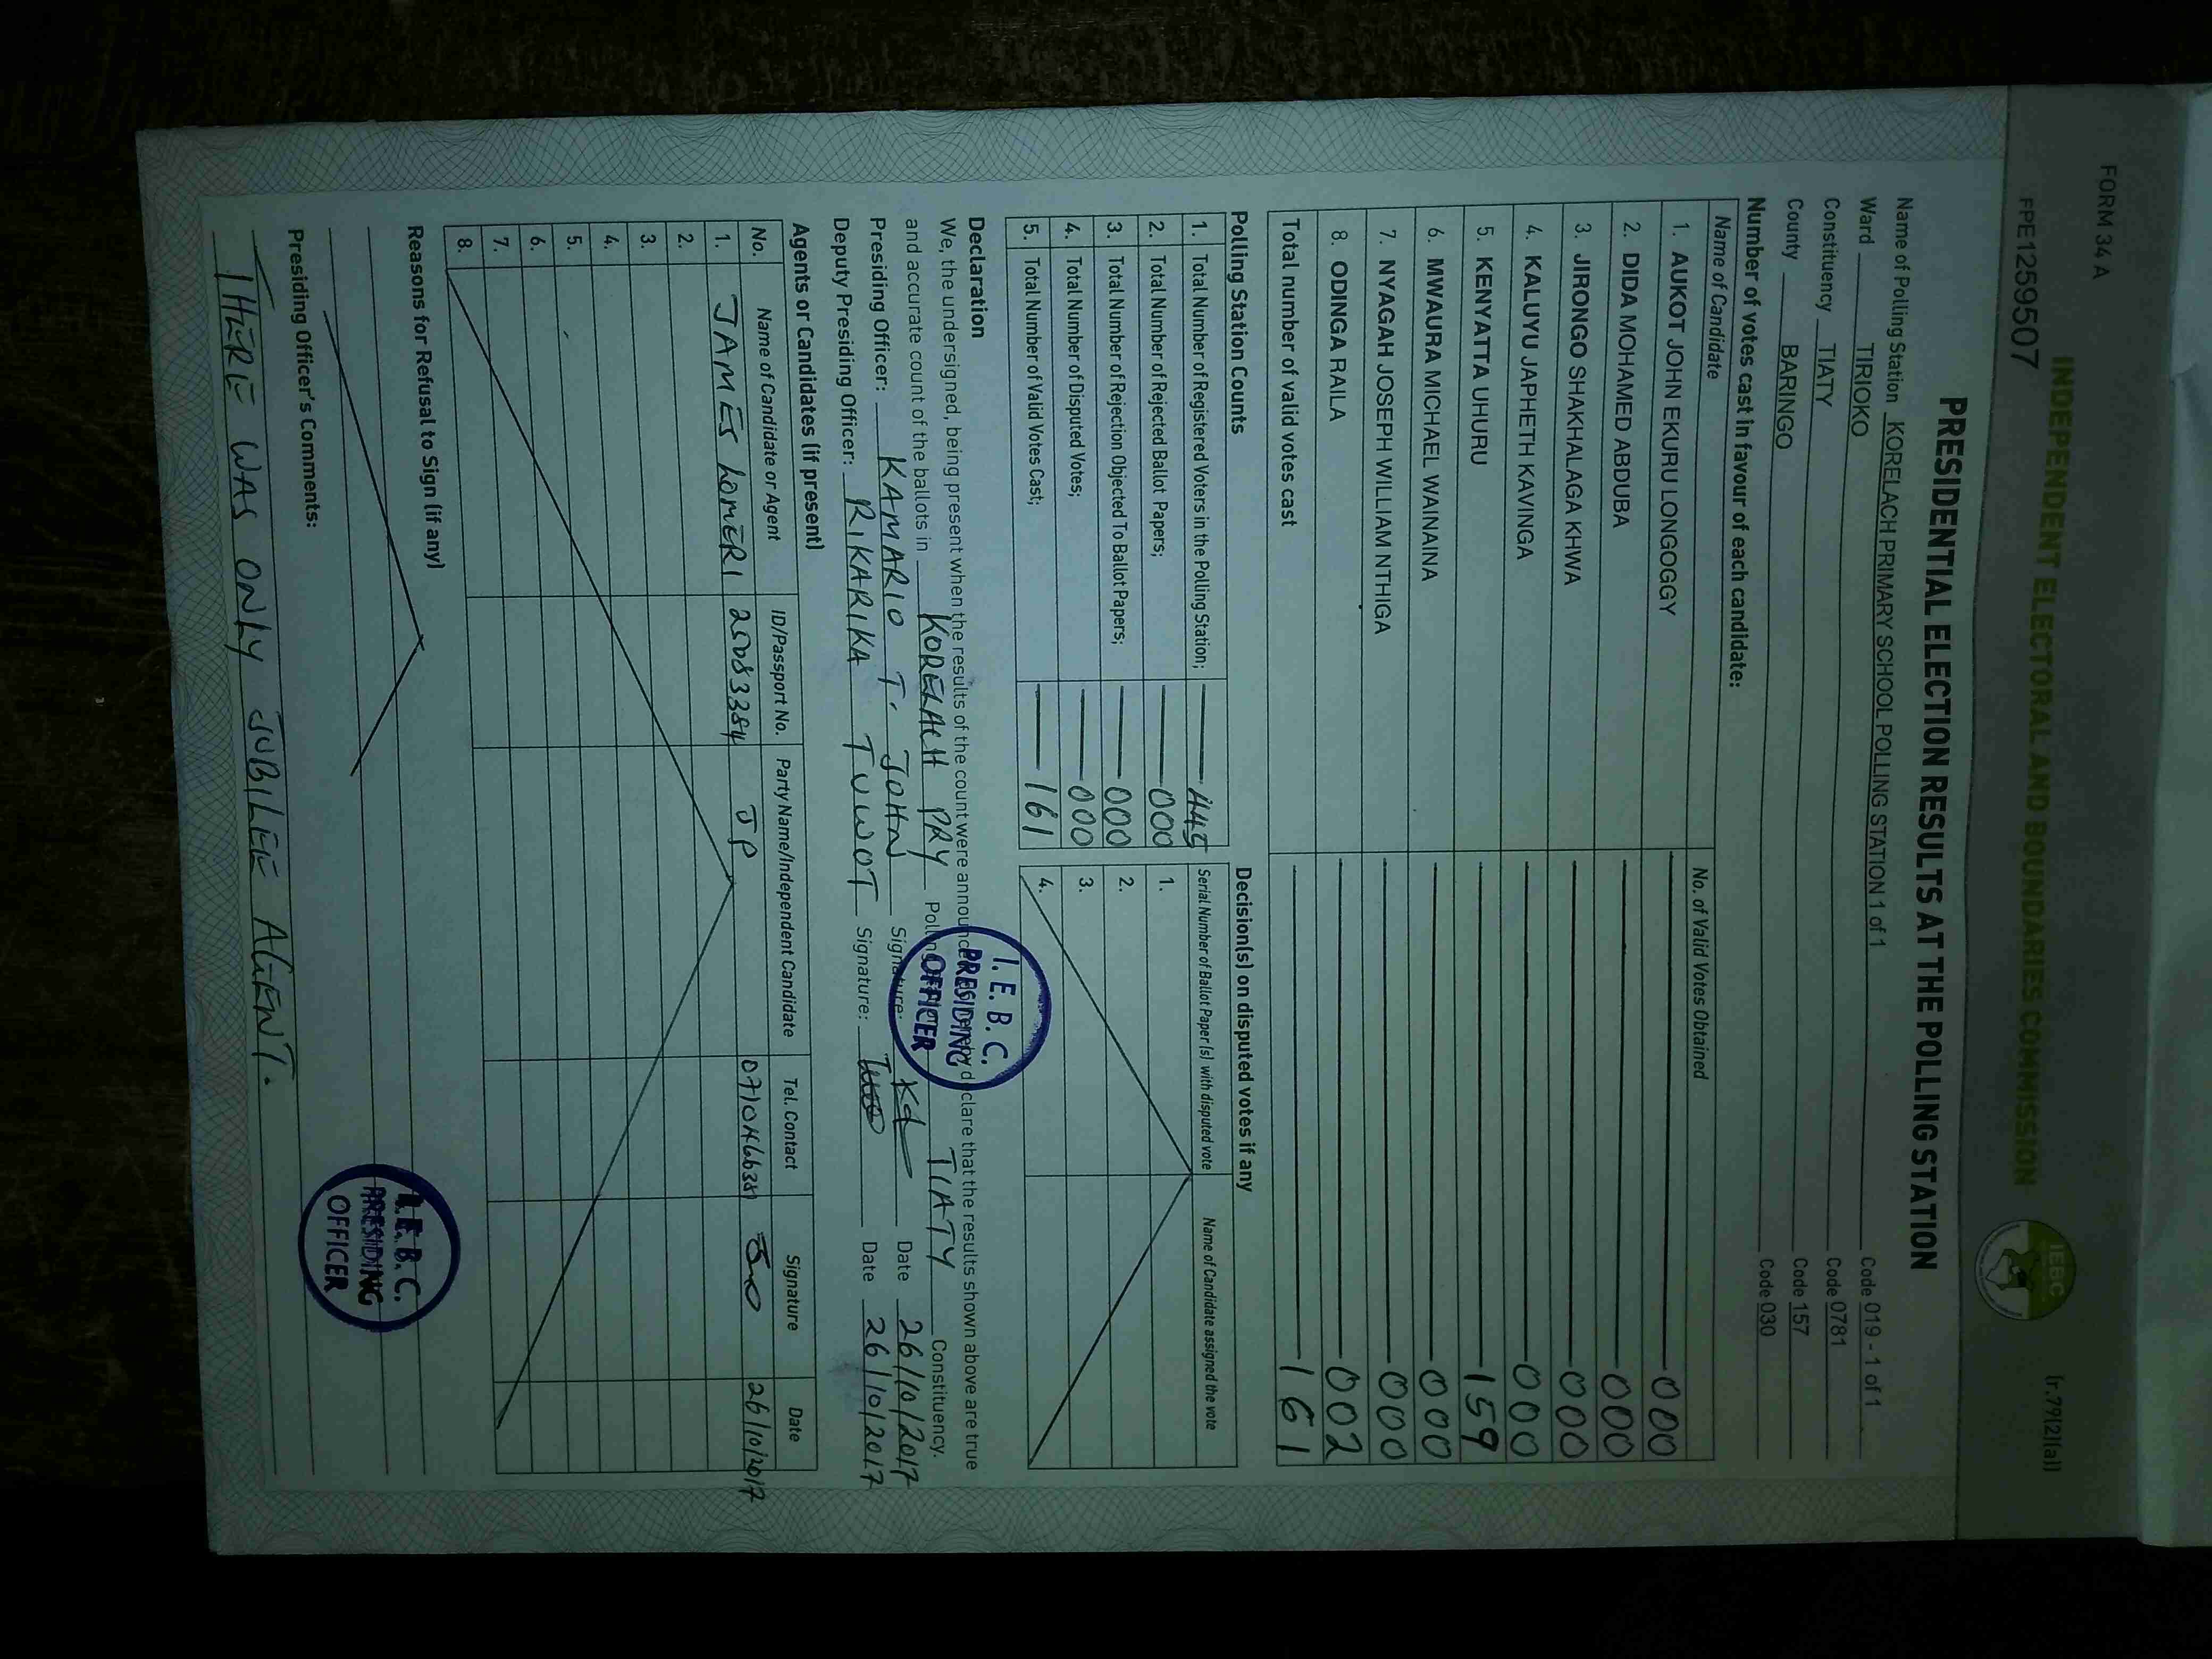 FORM 34 A
(r.79(2)(a))
INDEPENDENT ELECTORAL AND BOUNDARIES COMMISSION
IEBC
FPE1259507
PRESIDENTIAL ELECTION RESULTS AT THE POLLING STATION
Name of Polling Station KORELACH PRIMARY SCHOOL POLLING STATION 1 of 1 Code 019 - 1 of 1
Ward TIRIOKO Code 0781
Constituency TIATY Code 157
County BARINGO Code 030
Number of votes cast in favour of each candidate:
Name of Candidate No. of Valid Votes Obtained
1. AUKOT JOHN EKURU LONGOGGY 000
2. DIDA MOHAMED ABDUBA 000
3. JIRONGO SHAKHALAGA KHWA 000
4. KALUYU JAPHETH KAVINGA 000
5. KENYATTA UHURU 159
6. MWAURA MICHAEL WAINAINA 000
7. NYAGAH JOSEPH WILLIAM NTHIGA 000
8. ODINGA RAILA 002
Total number of valid votes cast 161
Polling Station Counts
1. Total Number of Registered Voters in the Polling Station; 445
2. Total Number of Rejected Ballot Papers; 000
3. Total Number of Rejection Objected To Ballot Papers; 000
4. Total Number of Disputed Votes; 000
5. Total Number of Valid Votes Cast; 161
Decision(s) on disputed votes if any
Serial Number of Ballot Paper(s) with disputed vote Name of Candidate assigned the vote
1.
2.
3.
4.
Declaration
We, the undersigned, being present when the results of the count were announced clare that the results shown above are true
and accurate count of the ballots in KORELACH PRY Polling TIATY Constituency.
Presiding Officer: KAMARIO T. JOHN Signature: Date 26/10/2017
Deputy Presiding Officer: RIKARIKA TUWOT Signature: Date 26/10/2017
I.E.B.C.
PRESIDING
OFFICER
Agents or Candidates (if present)
No. Name of Candidate or Agent ID/Passport No. Party Name/Independent Candidate Tel. Contact Signature Date
1. JAMES LOMERI 25083384 JP 26/10/2017
2.
3.
4.
5.
6.
7.
8.
Reasons for Refusal to Sign (if any)
I.E.B.C.
PRESIDING
OFFICER
Presiding Officer's Comments:
THERE WAS ONLY JUBILEE AGENT.